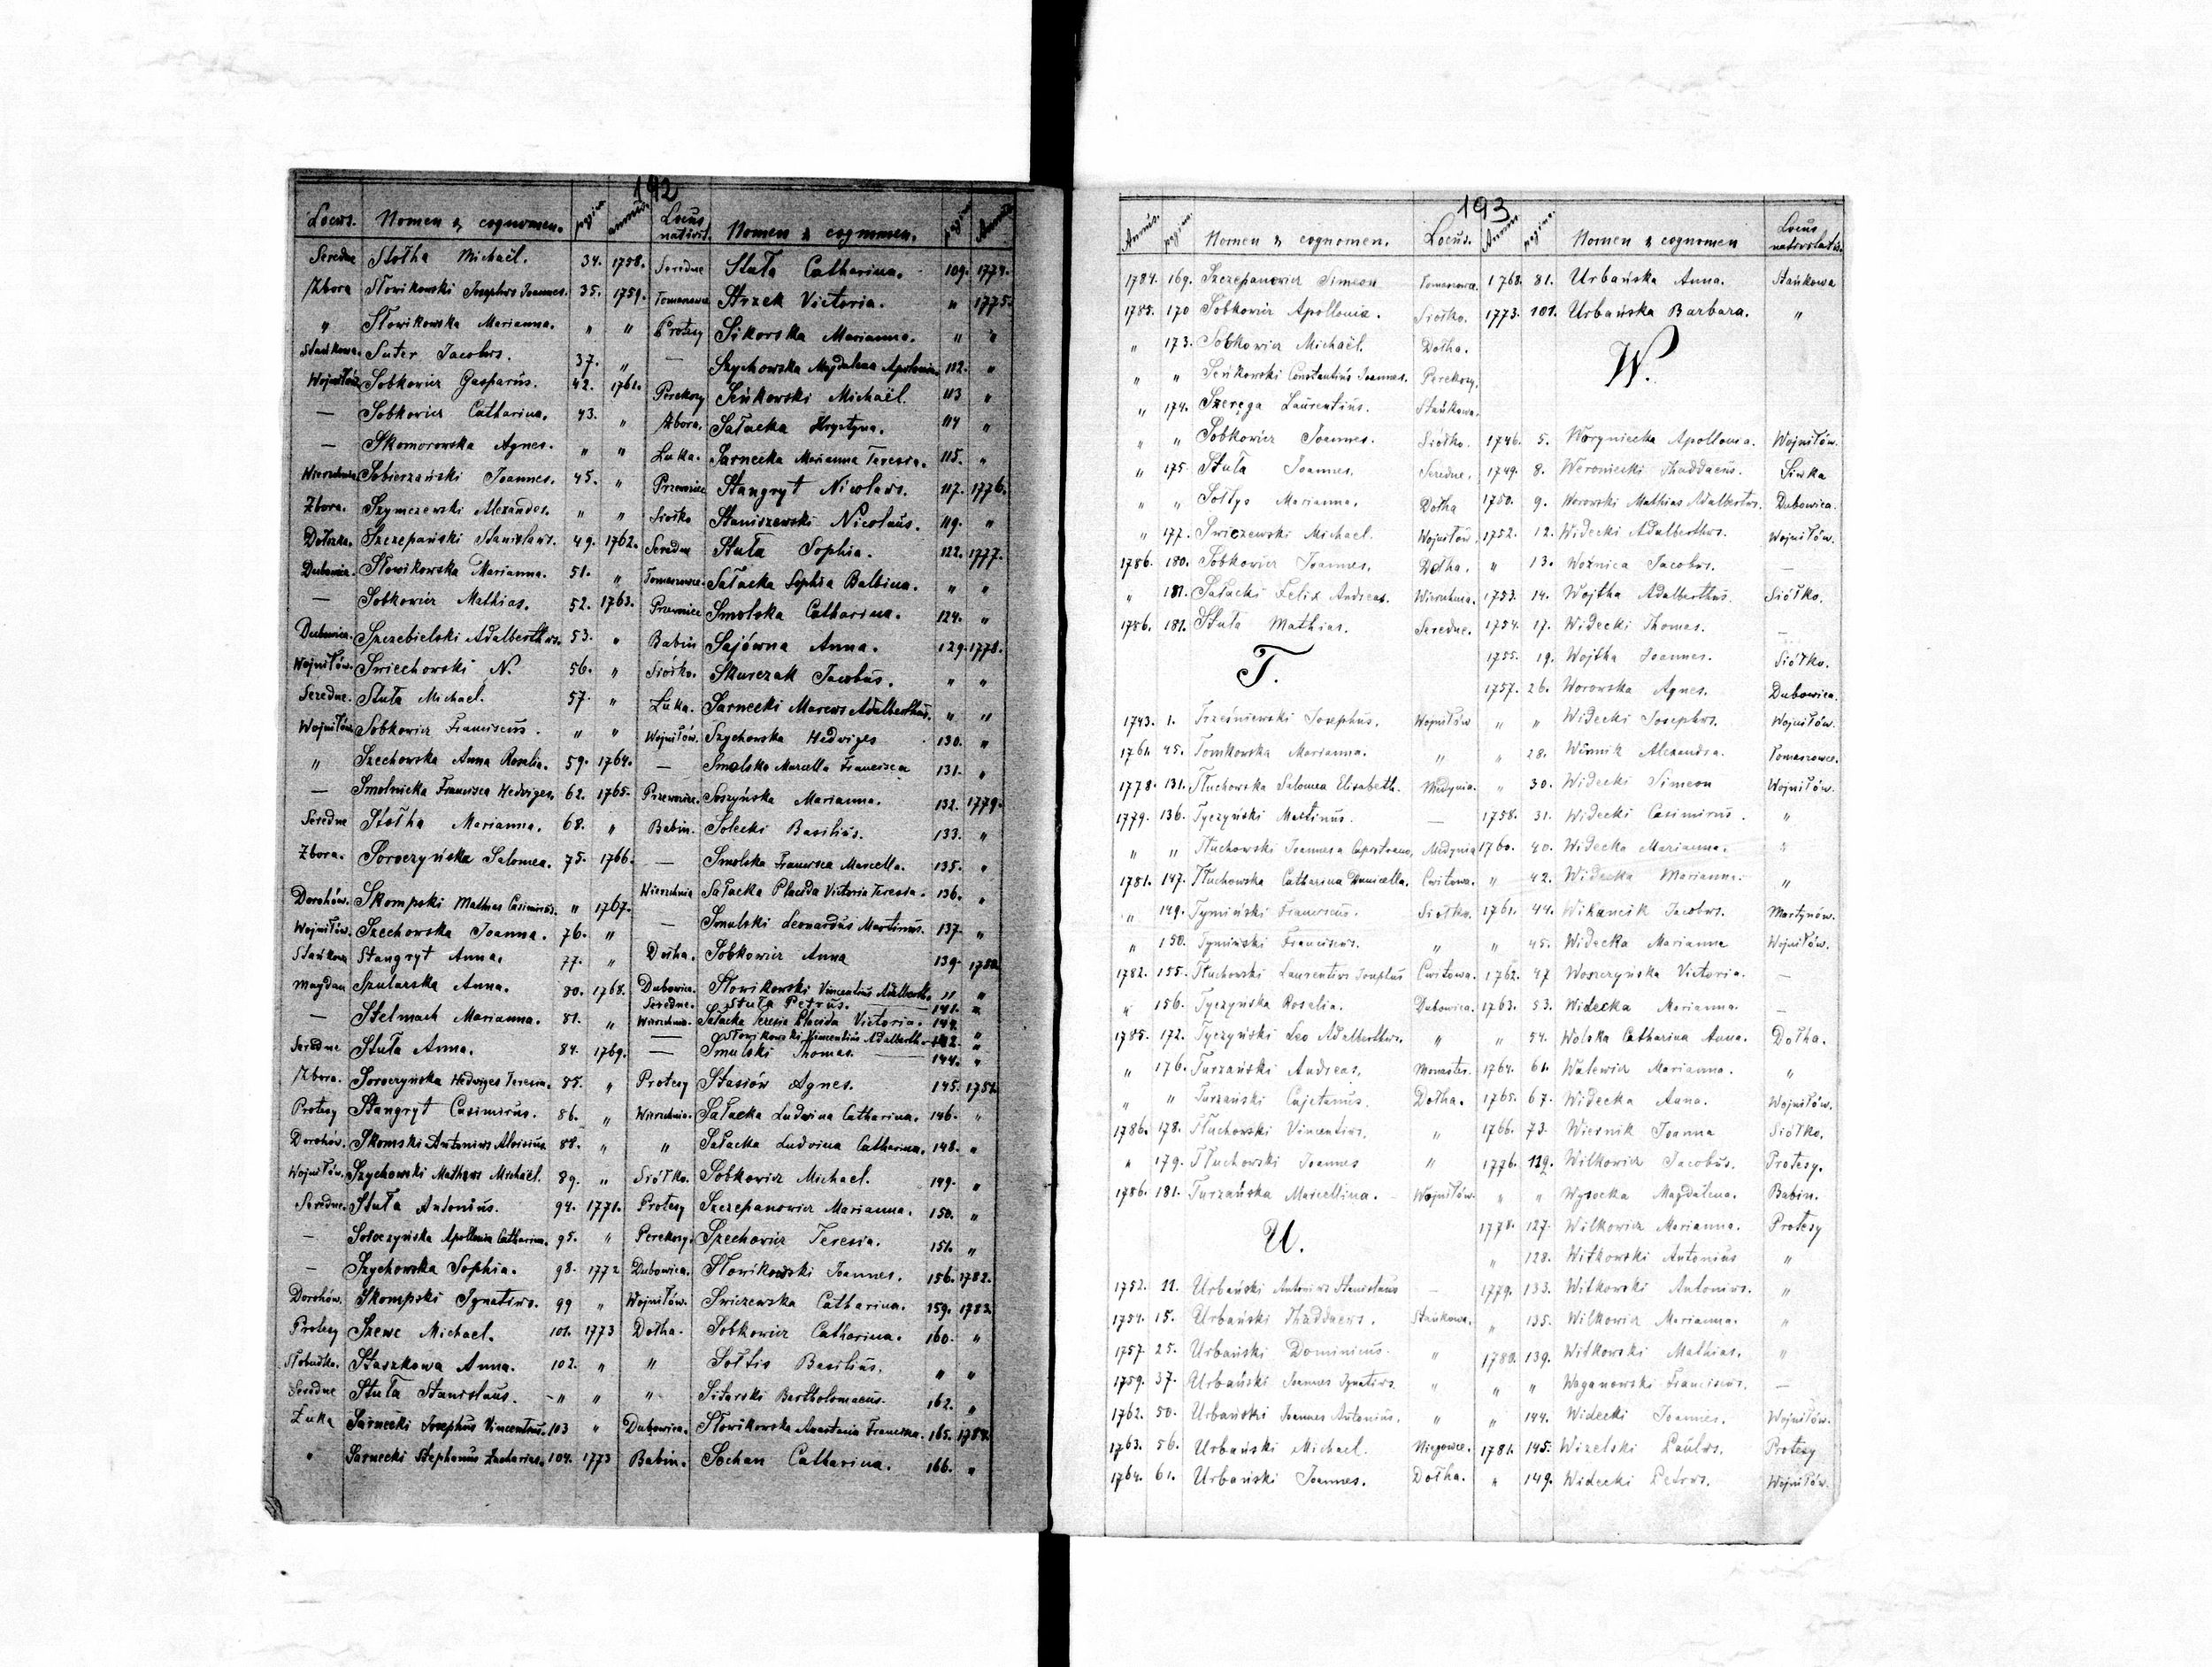 192
Locus. Nomen & cognomen. pagina annus.
Seredne Stotha Michaël. 34. 1758.
Zbora Słowikowski Josephus Joannes. 35. 1759.
" Słowikowska Marianna. " "
Stańkowa. Suter Jacobus. 37. "
Wojniłów. Sobkowicz Gasparus. 42. 1761.
— Sobkowicz Catharina. 43. "
— Skomorowska Agnes. " "
Wierzchnia Sobierzański Joannes. 45. "
Zbora. Szymczewski Alexander. " "
Dołszka. Szczepański Stanislaus. 49. 1762.
Dubowica. Słowikowska Marianna. 51. "
— Sobkowicz Mathias. 52. 1763.
Dubowica. Szczebielski Adalberthus. 53. "
Wojniłów. Swiechowski N. 56. "
Seredne. Stuła Michael. 57. "
Wojniłów. Sobkowicz Franciscus. " "
" Szechowska Anna Rosalia. 59. 1764.
— Smolnicka Francisca Hedviges. 62. 1765.
Seredne Stotha Marianna. 68. "
Zbora. Soroczyńska Salomea. 75. 1766.
Dorohów. Skompski Mathias Casimirus. " 1767.
Wojniłów. Szechowska Joanna. 76. "
Stańkowa Stangryt Anna. 77. "
Magdan Szularska Anna. 80. 1768.
— Stelmach Marianna. 81. "
Seredne Stuła Anna. 84. 1769.
Zbora. Soroczyńska Hedviges Teresia. 85. "
Protesy Stangryt Casimirus. 86. "
Dorohów. Skomski Antonius Aloisius 88. "
Wojniłów. Szychowski Matheus Michaël. 89. "
Seredne. Stuła Antonius. 94. 1771.
— Sołoczyńska Apollonia Catharina. 95. "
— Szychowska Sophia. 98. 1772
Dorohów. Skompski Ignatius. 99 "
Protesy Szewc Michael. 101. 1773
Słobudka. Staszkowa Anna. 102. "
Seredne Stuła Stanislaus. " "
Łuka Sarnecki Josephus Vincentius. 103 "
" Sarnecki Stephanus Zacharias. 104. 1773
Locus nativit. Nomen & cognomen. pagina Annus
Seredne Stuła Catharina. 109. 1774.
Tomaszowce Strzek Victoria. " 1775.
Protesy Sikorska Marianna. " "
— Szychowska Magdalena Apolonia. 112. "
Perekosy Seńkowski Michaël. 113 "
Zbora. Sałacka Krystyna. 114 "
Łuka. Sarnecka Marianna Teresia. 115. "
Przewoziec Stangryt Nicolaus. 117. 1776.
Siółko Staniszewski Nicolaus. 119. "
Seredne Stuła Sophia. 122. 1777.
Tomaszowce. Sałacka Sophia Balbina. " "
Przewoziec Smolska Catharina. 124. "
Babin Sajówna Anna. 129. 1778.
Siółko. Skurczak Jacobus. " "
Łuka. Sarnecki Marcus Adalberthus. " "
Wojniłów. Szychowska Hedviges 130. "
— Smolska Marcella Francisca 131. "
Przewoziec. Soszyńska Marianna. 132. 1779.
Babin. Solecki Basilius. 133. "
— Smolska Francisca Marcella. 135. "
Wierzchnia Sałacka Placida Victoria Teresia. 136. "
— Smulski Leonardus Martinus. 137. "
Dołha. Sobkowicz Anna 139. 1780.
Dubowica. Słowikowski Vincentius Adalberth. " "
Seredne. Stuła Petrus. — 141. "
Wierzchnia. Sałacka Teresia Placida Victoria. 142. "
— Słowikowski Vincentius Adalberth. 142. "
— Smulski Thomas. — 144. "
Protesy Stasiów Agnes. 145. 1781.
Wierzchnia. Sałacka Ludwina Catharina. 146. "
" Sałacka Ludvica Catharina. 148. "
Siółko. Sobkowicz Michael. 149. "
Protesy Szczepanowicz Marianna. 150. "
Perekosy. Szechowicz Teresia. 151. "
Dubowica. Słowikowski Joannes. 156. 1782.
Wojniłów. Swiczewska Catharina. 159. 1783.
Dołha. Sobkowicz Catharina. 160. "
" Sołtis Basilius. " "
" Sitarski Bartholomaeus. 162. "
Dubowica. Słowikowska Anastasia Francisca. 165. 1784.
Babin. Sochan Catharina. 166. "
193
Annus. pagina. Nomen & cognomen. Locus.
1784. 169. Szczepanowicz Simeon Tomaszowce.
1785. 170 Sobkowicz Apollonia. Siółko.
" 173. Sobkowicz Michaël. Dołha.
" " Seńkowski Constantius Joannes. Perekosy.
" 174. Szeręga Laurentius. Stańkowa.
" " Sobkowicz Joannes. Siółko.
" 175. Stuła Joannes. Seredne.
" " Sołtys Marianna. Dołha
" 177. Swiczewski Michael. Wojniłów.
1786. 180. Sobkowicz Joannes. Dołha.
" 181. Sałacki Felix Andreas. Wierzchnia.
1756. 181. Stuła Mathias. Seredne.
T.
1743. 1. Trześniewski Josephus. Wojniłów
1761. 45. Tomkowska Marianna. "
1778. 131. Tłuchowska Salomea Elisabeth. Medynia.
1779. 136. Tyczyński Martinus. —
" " Tłuchowski Joannes a Capistrano, Medynia
1781. 147. Tłuchowska Catharina Dunicella. Cwitowa.
" 149. Tymiński Franciscus. Siółko.
" 150. Tymiński Franciscus. "
1782. 155. Tłuchowski Laurentius Josephus Cwitowa.
" 156. Tyczyńska Rosalia. Dubowica.
1785. 172. Tyczyński Leo Adalberthus. "
" 176. Turzański Andreas. Monaster.
" " Turzański Cajetanus. Dołha.
1786. 178. Tłuchowski Vincentius. "
" 179. Tłuchowski Joannes "
1786. 181. Turzańska Marcellina. Wojniłów.
U.
1752. 11. Urbański Antonius Stanislaus —
1754. 15. Urbański Thaddaeus. Stańkowa.
1757. 25. Urbański Dominicus. "
1759. 37. Urbański Joannes Ignatius. "
1762. 50. Urbański Joannes Antonius. "
1763. 56. Urbański Michael. Niegowce.
1764. 61. Urbański Joannes. Dołha.
Annus. pagina. Nomen & cognomen Locus nativitatis.
1768. 81. Urbańska Anna. Stańkowa
1773. 101. Urbańska Barbara. "
W.
1746. 5. Worynicka Apollonia. Wojniłów.
1749. 8. Weroniecki Thaddaeus. Siwka
1750. 9. Worowski Mathias Adalbertus. Dubowica.
1752. 12. Widecki Adalberthus. Wojniłów.
" 13. Woźnica Jacobus. —
1753. 14. Wojtha Adalberthus. Siółko.
1754. 17. Widecki Thomas. —
1755. 19. Wojtha Joannes. Siółko.
1757. 26. Worowska Agnes. Dubowica.
" " Widecki Josephus. Wojniłów.
" 28. Winnik Alexandra. Tomaszowce.
" 30. Widecki Simeon Wojniłów.
1758. 31. Widecki Casimirus. "
1760. 40. Widecka Marianna. "
" 42. Widecka Marianna. "
1761. 44. Wikancik Jacobus. Martynów.
" 45. Widecka Marianna Wojniłów.
1762. 47 Woszczyńska Victoria. —
1763. 53. Widecka Marianna. —
" 54. Wolska Catharina Anna. Dołha.
1764. 61. Walewicz Marianna. "
1765. 67. Widecka Anna. Wojniłów.
1766. 73. Wiernik Joanna Siółko.
1776. 119. Wilkowicz Jacobus. Protesy.
" " Wysocka Magdalena. Babin.
1778. 127. Wilkowicz Marianna. Protesy
" 128. Witkowski Antonius "
1779. 133. Witkowski Antonius. "
" 135. Wilkowicz Marianna. "
1780. 139. Witkowski Mathias. "
" " Waganowski Franciscus. —
" 144. Widecki Joannes. Wojniłów.
1781. 145. Wizelski Paulus. Protesy
" 149. Widecki Petrus. Wojniłów.